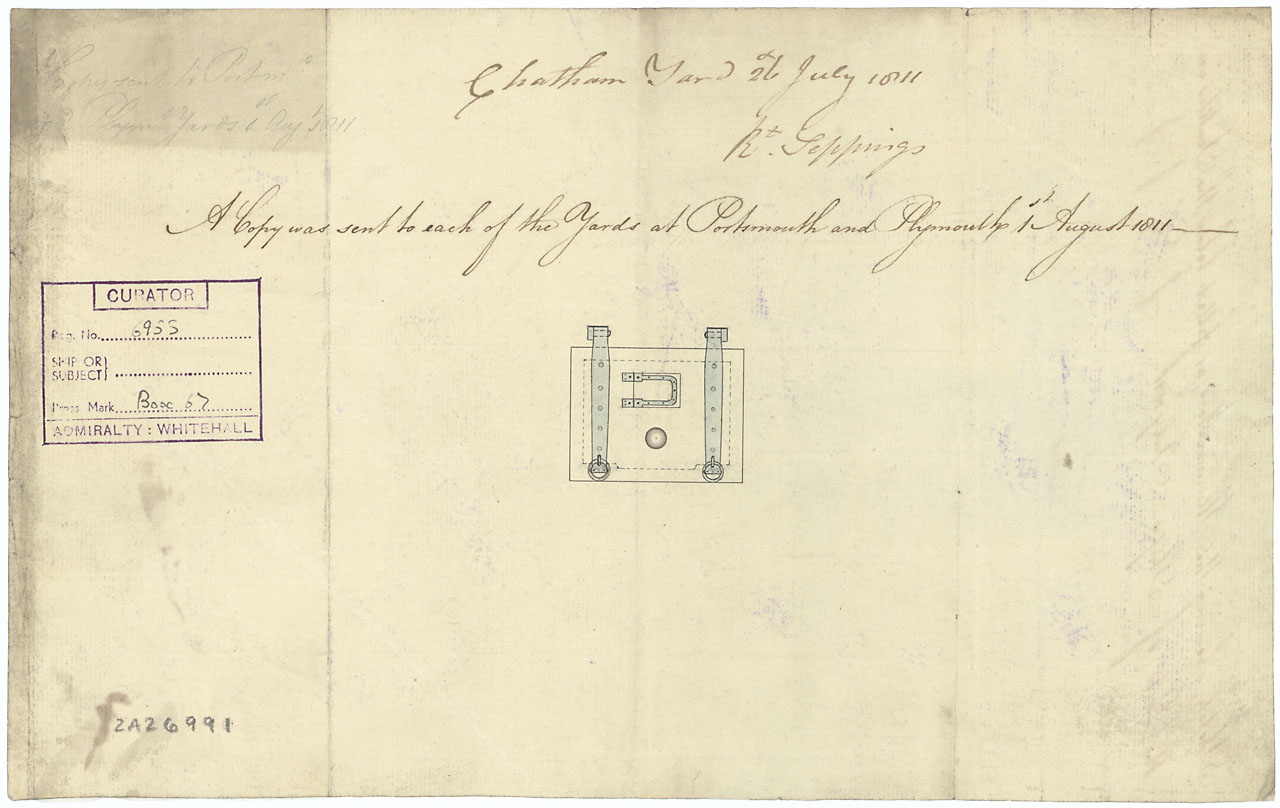 Copy sent to Portsmo
Plym Yards 1st Augt 1811
Chatham Yard 26th July 1811
Rt. Seppings
A Copy was sent to each of the Yards at Portsmouth and Plymouth 1st August 1811
CURATOR
Reg. No. 6955
SHIP OR
SUBJECT
Press Mark Box 67
ADMIRALTY : WHITEHALL
2A26991